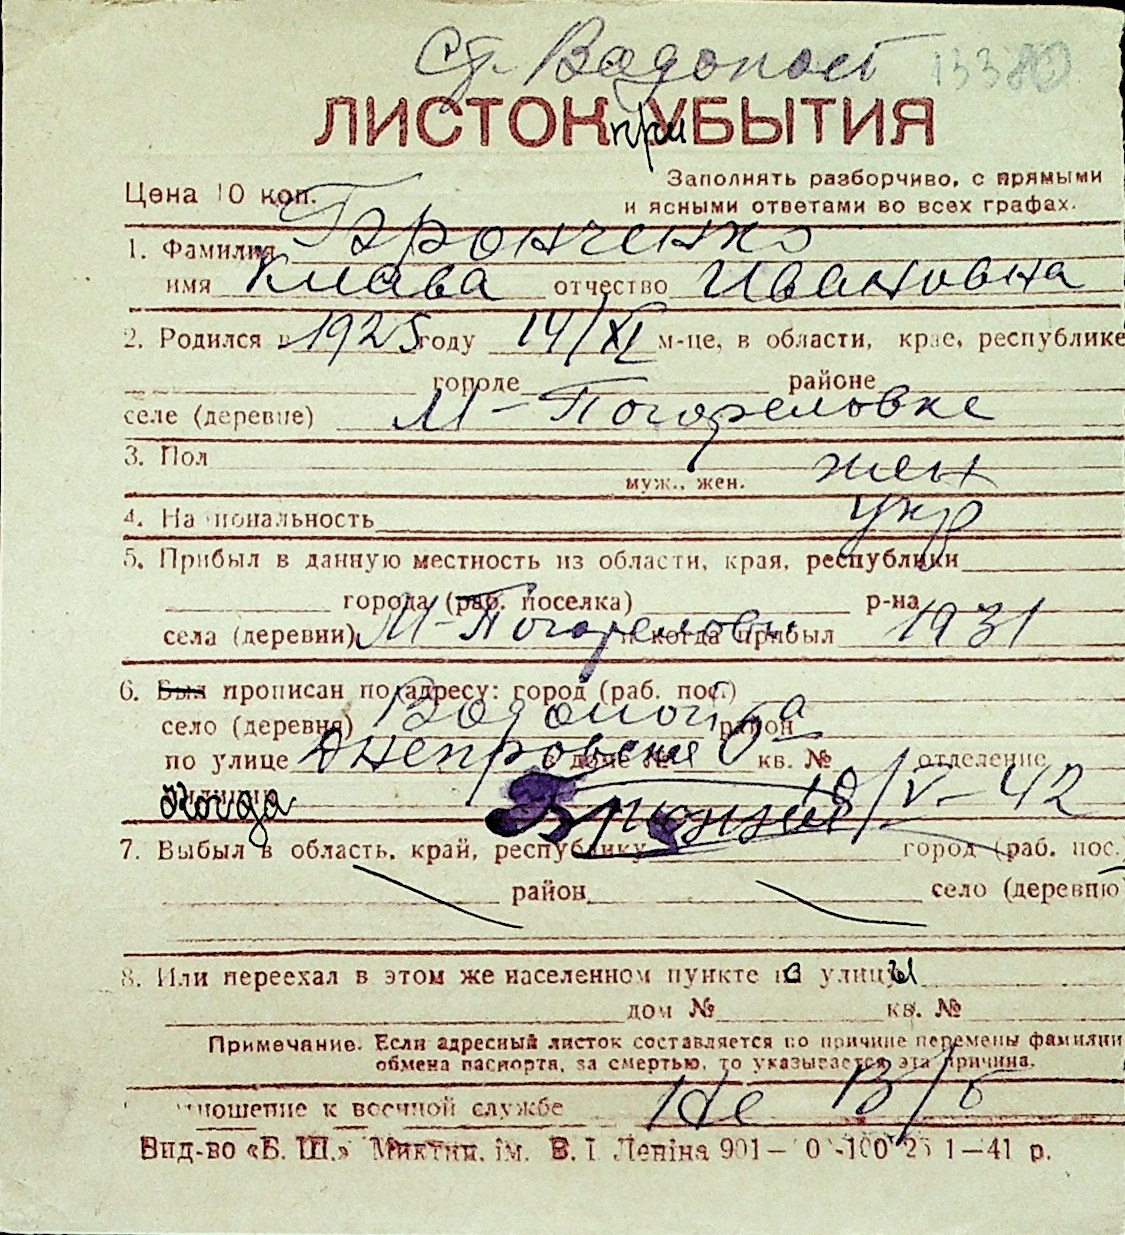 ст. Водопост 13380
ЛИСТОК при УБЫТИЯ
Цена 10 коп. Заполнять разборчиво, с прямыми
и ясными ответами во всех графах.
1. Фамилия
имя Клава отчество Ивановна
2. Родился в 1925 году 14/XI м-це, в области, крае, республике
городе районе
селе (деревне) М-Погореловке
3. Пол жен
муж., жен.
4. Национальность укр
5. Прибыл в данную местность из области, края, республики
города (раб. поселка) р-на
села (деревни) М-Погореловки и когда прибыл 1931
6. Был прописан по адресу: город (раб. пос.)
село (деревня) район
по улице Днепровские 6а в доме № кв. № отделение
когда 18/V-42
7. Выбыл в область, край, республику город (раб. пос.)
район село (деревню)
8. Или переехал в этом же населенном пункте из улицы
дом № кв. №
Примечание. Если адресный листок составляется по причине перемены фамилии
обмена паспорта, за смертью, то указывается эта причина.
отношение к военной службе Не в/б
Вид-во «Б. Ш.» Миктип. ім. В. І. Леніна 901— 0 -100 25 1—41 р.